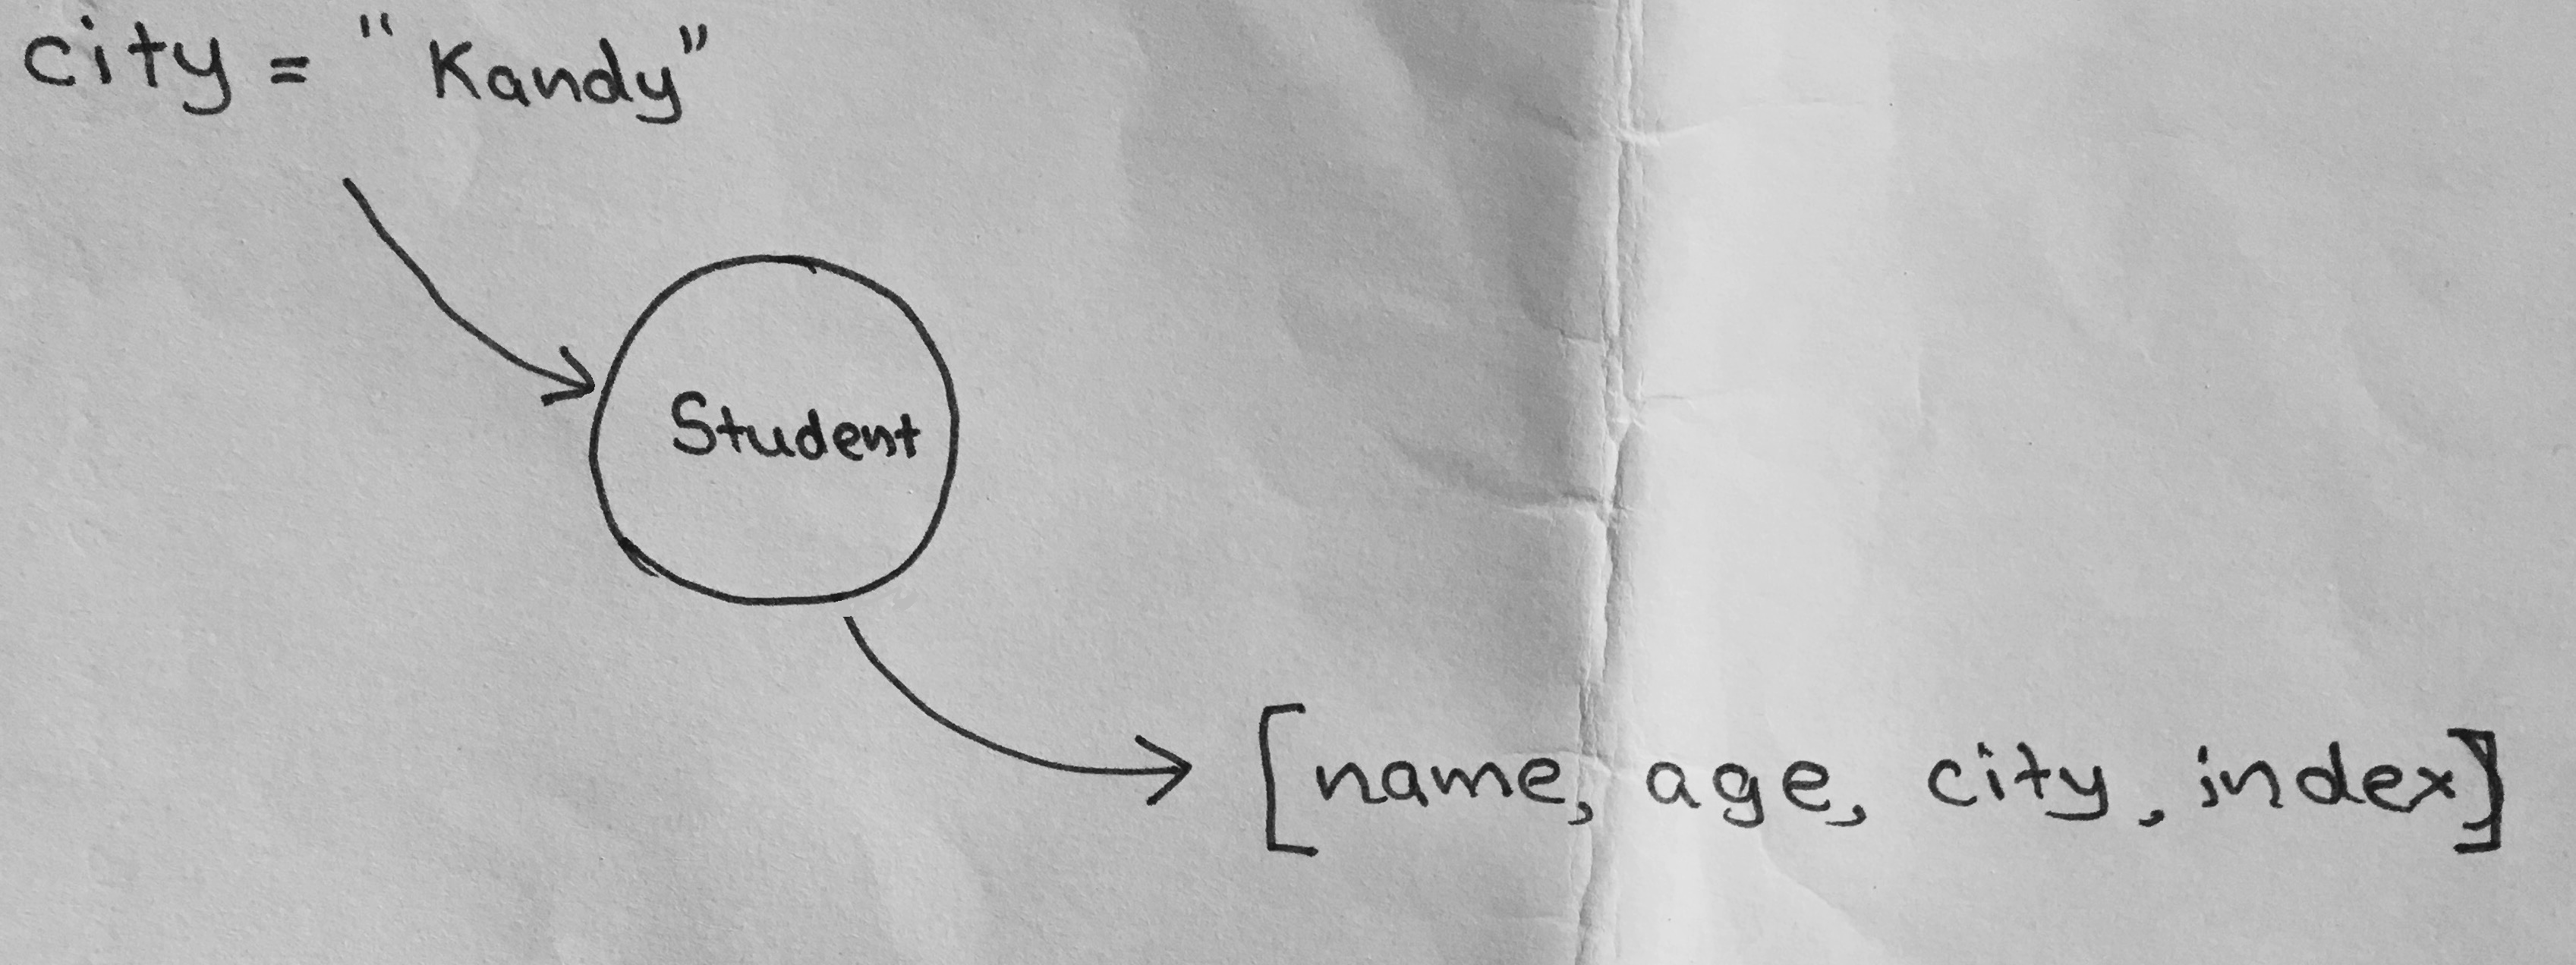 city = "Kandy"
Student
[name, age, city, index]